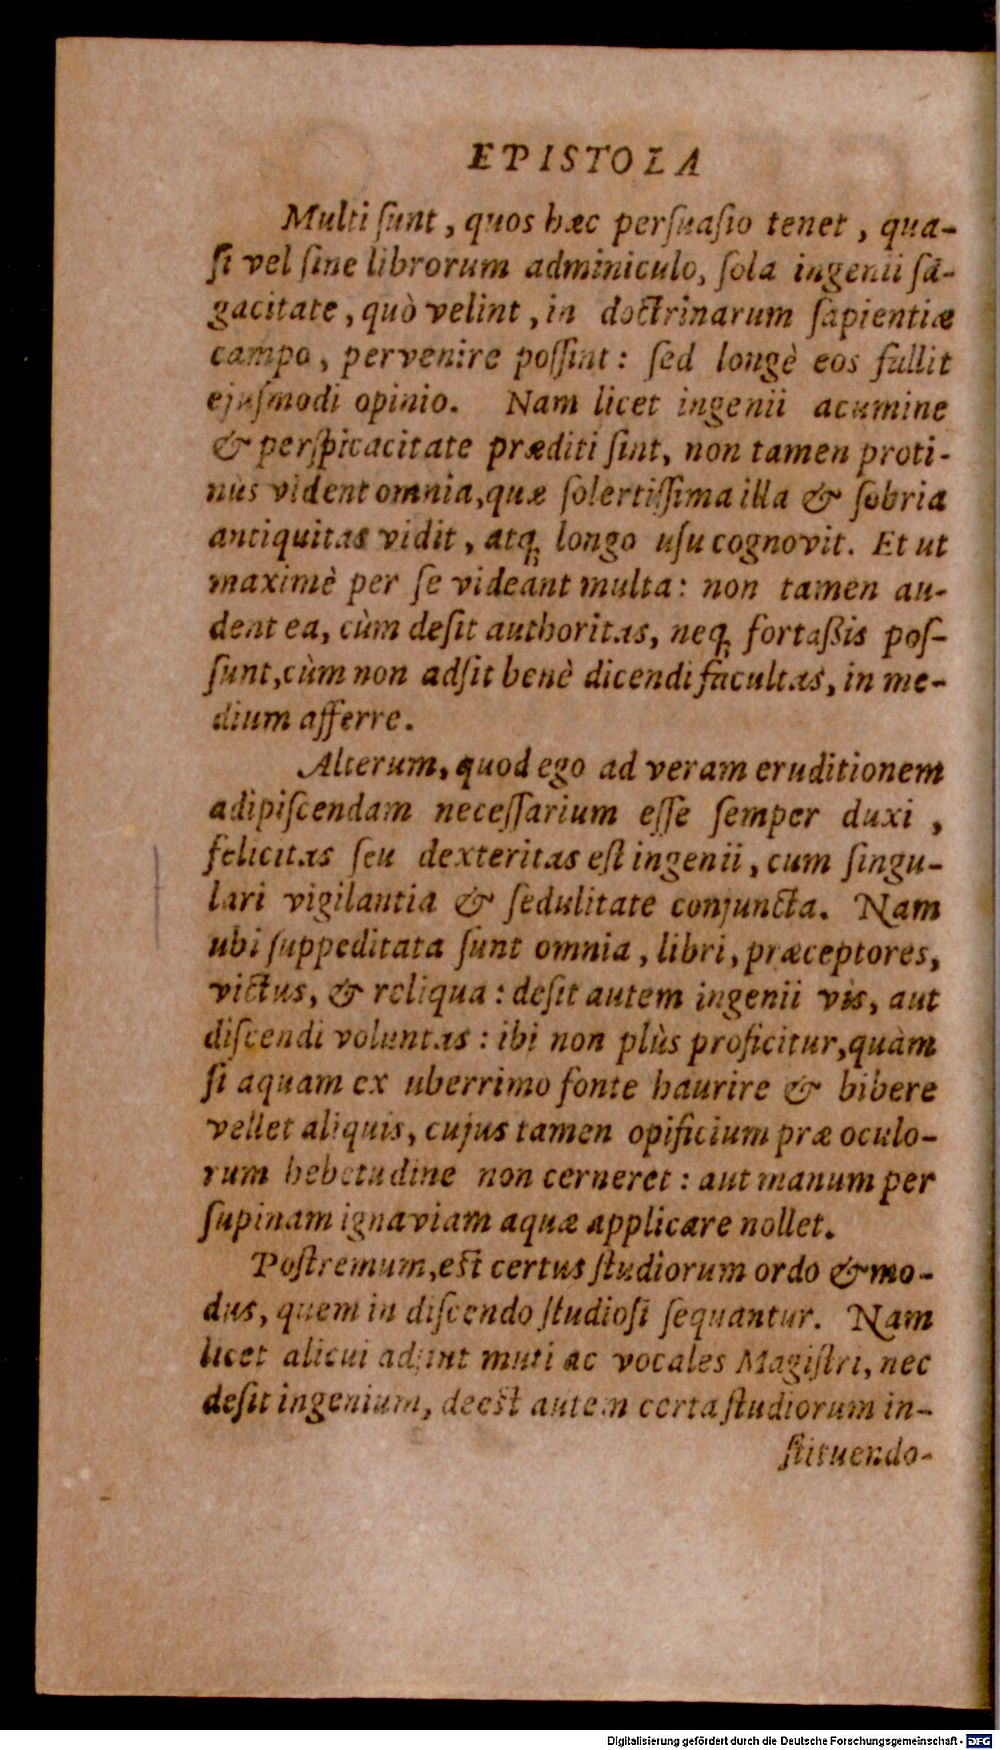 EPISTOLA
Multi ſunt, quos hæc perſuaſio tenet, qua-
ſi vel ſine librorum adminiculo, ſola ingenii ſa-
gacitate, quò velint, in doctrinarum ſapientiæ
campo, pervenire poſſint: ſed longè eos fallit
ejuſmodi opinio. Nam licet ingenii acumine
& perſpicacitate præditi ſint, non tamen proti-
nùs vident omnia, quæ ſolertiſſima illa & ſobria
antiquitas vidit, atq; longo uſu cognovit. Et ut
maximè per ſe videant multa: non tamen au-
dent ea, cùm deſit authoritas, neq; fortaßis poſ-
ſunt, cùm non adſit benè dicendi facultas, in me-
dium afferre.
Alterum, quod ego ad veram eruditionem
adipiſcendam neceſſarium eſſe ſemper duxi,
felicitas ſeu dexteritas eſt ingenii, cum ſingu-
lari vigilantia & ſedulitate conjuncta. Nam
ubi ſuppeditata ſunt omnia, libri, præceptores,
victus, & reliqua: deſit autem ingenii vis, aut
diſcendi voluntas: ibi non plùs proficitur, quàm
ſi aquam ex uberrimo fonte haurire & bibere
vellet aliquis, cujus tamen opificium præ oculo-
rum hebetudine non cerneret: aut manum per
ſupinam ignaviam aquæ applicare nollet.
Poſtremum, eſt certus ſtudiorum ordo & mo-
dus, quem in diſcendo ſtudioſi ſequantur. Nam
licet alicui adſint muti ac vocales Magiſtri, nec
deſit ingenium, deeſt autem certa ſtudiorum in-
ſtituendo-
Digitalisierung gefördert durch die Deutsche Forschungsgemeinschaft - DFG